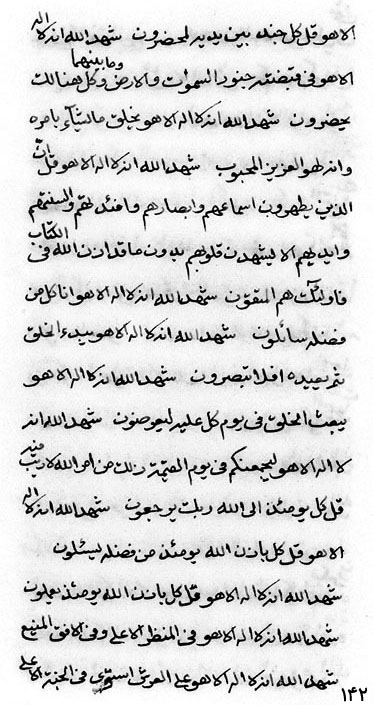 الا هو قل كل جند بين يديه لمحضرون شهد الله انه لا اله
الا هو فى قبضته جنود السموات والارض وما بينهما وكل هنالك
يحضرون شهد الله انه لا اله الا هو يخلق ما يشآء بامره
وانه لهو العزيز المحبوب شهد الله انه لا اله الا هو قل ان
الذين يطهرون اسماعهم وابصارهم وافئدتهم والسنتهم
وايديهم الا ليشهدن قلوبهم بدون ما قد اذن الله فى الكتاب
فاولئك هم المتقون شهد الله انه لا اله الا هو انا كل من
فضله سائلون شهد الله انه لا اله الا هو يبدء الخلق
ثم يعيده افلا تبصرون شهد الله انه لا اله الا هو
يبعث الخلق فى يوم كل عليه ليعرضون شهد الله انه
لا اله الا هو ليجمعنكم فى يوم القيمة ذلك من امر الله لا ريب فيه
قل كل يومئذ الى الله ربك يرجعون شهد الله انه لا اله
الا هو قل كل باذن الله يومئذ من فضله ليسئلون
شهد الله انه لا اله الا هو قل كل باذن الله يومئذ يعملون
شهد الله انه لا اله الا هو فى المنظر الاعلى وفى الافق المنيع
شهد الله انه لا اله الا هو على العرش استوى فى الجنة الاعلى
١٤٢